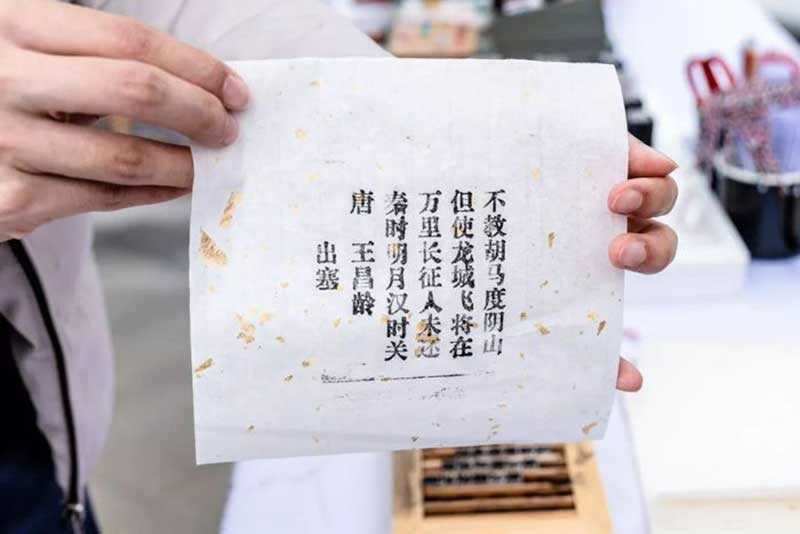 出塞
唐 王昌龄
秦时明月汉时关
万里长征人未还
但使龙城飞将在
不教胡马度阴山